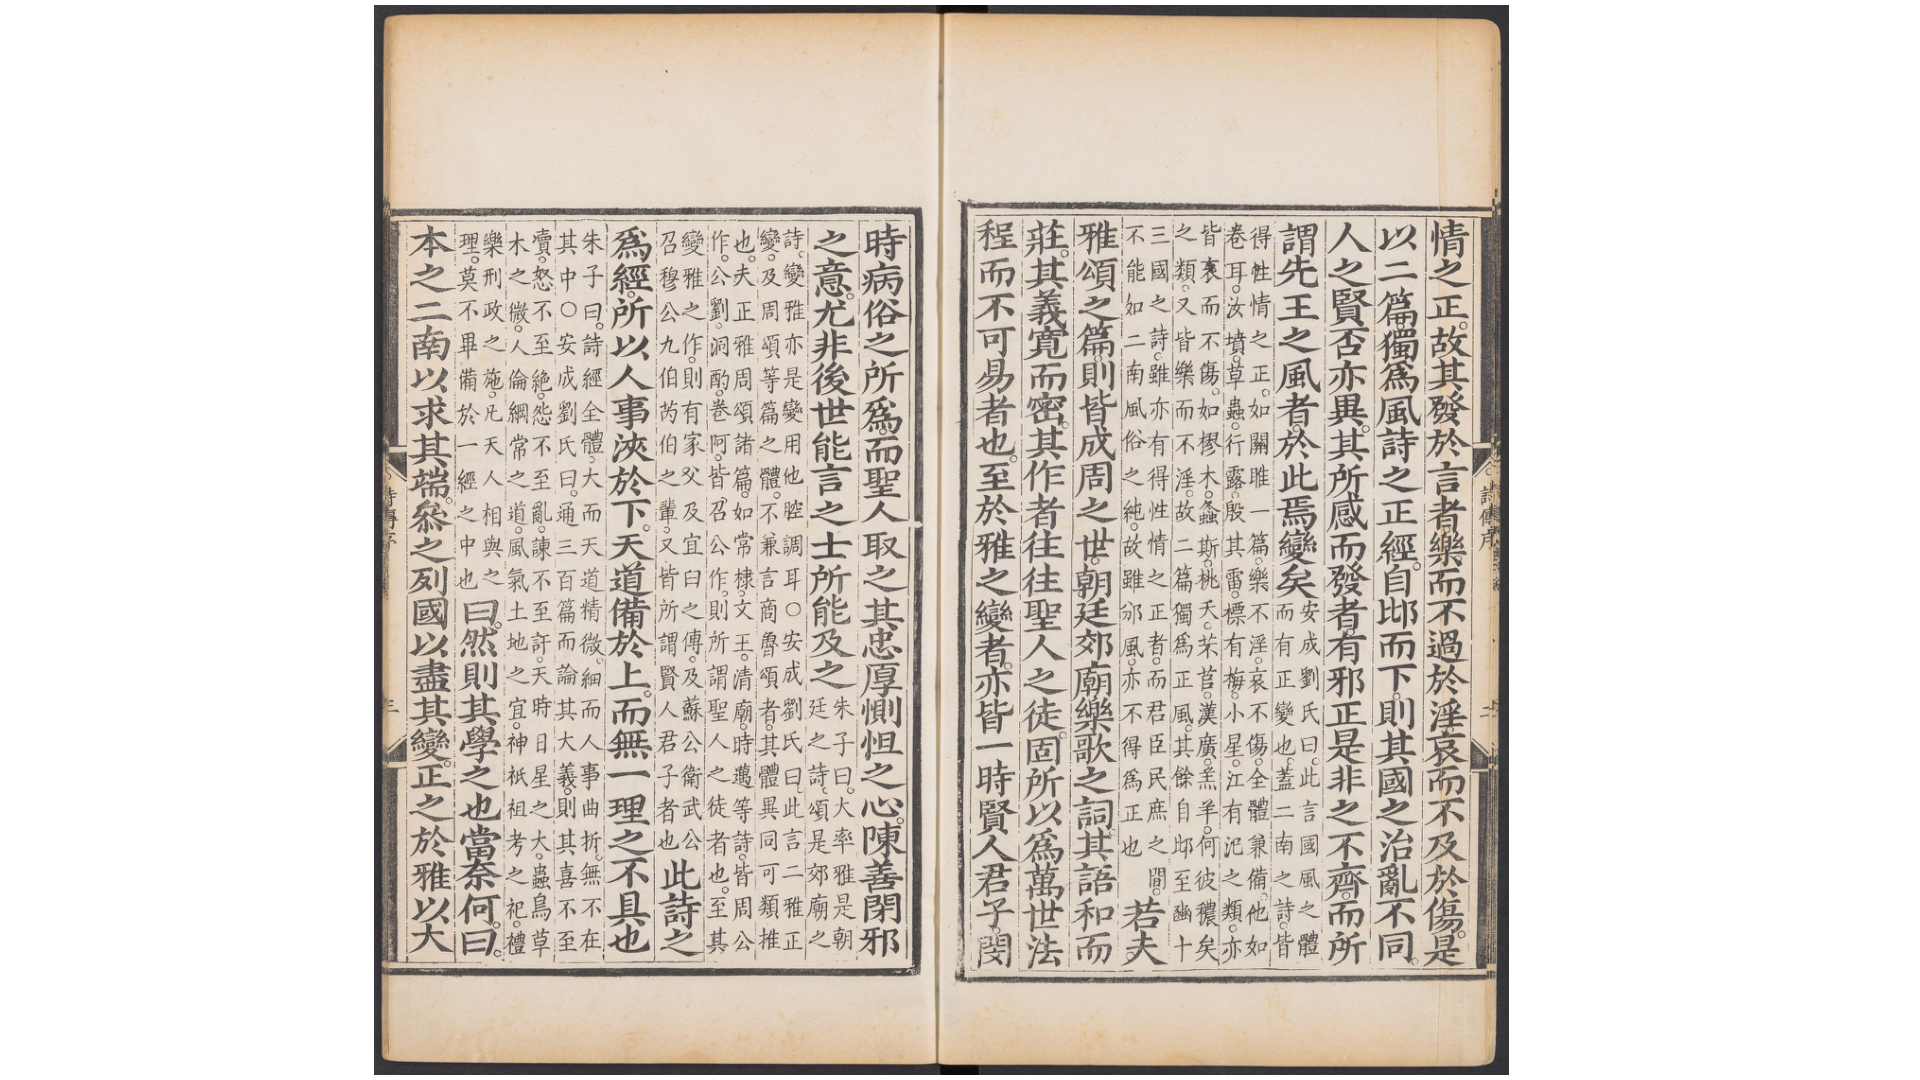 情之正。故其發於言者。樂而不過於淫。哀而不及於傷。是
以二篇。獨爲風詩之正經。自邶而下。則其國之治亂不同。
人之賢否亦異。其所感而發者。有邪正是非之不齊。而所
謂先王之風者。於此焉變矣
安成劉氏曰。此言國風之體
而有正變也。蓋二南之詩。皆
得性情之正。如關雎一篇。樂不淫。哀不傷。全體兼備。他如
卷耳。汝墳。草蟲。行露。殷其雷。標有梅。小星。江有汜之類。亦
皆哀而不傷。如樛木。螽斯。桃夭。芣苢。漢廣。羔羊。何彼穠矣
之類。又皆樂而不淫。故二篇獨爲正風。其餘自邶至豳十
三國之詩。雖亦有得性情之正者。而君臣民庶之間。
不能如二南風俗之純。故雖邠風。亦不得爲正也
若夫
雅頌之篇。則皆成周之世。朝廷郊廟樂歌之詞。其語和而
莊。其義寬而密。其作者往往聖人之徒。固所以爲萬世法
程而不可易者也。至於雅之變者。亦皆一時賢人君子。閔
時病俗之所爲。而聖人取之。其忠厚惻怛之心。陳善閉邪
之意。尤非後世能言之士所能及之
朱子曰。大率雅是朝
廷之詩。頌是郊廟之
詩。變雅亦是變用他腔調耳〇安成劉氏曰。此言二雅正
變。及周頌等篇之體。不兼言商魯頌者。其體異同可類推
也。夫正雅周頌諸篇。如常棣。文王。清廟。時邁等詩。皆周公
作。公劉。泂酌。卷阿。皆召公作。則所謂聖人之徒者也。至其
變雅之作。則有家父及宜臼之傳。及蘇公衛武公
召穆公凡伯芮伯之輩。又皆所謂賢人君子者也
此詩之
爲經。所以人事浹於下。天道備於上。而無一理之不具也
朱子曰。詩經全體。大而天道精微。細而人事曲折。無不在
其中〇安成劉氏曰。通三百篇而論其大義。則其喜不至
瀆。怒不至絶。怨不至亂。諫不至訐。天時日星之大。蟲鳥草
木之微。人倫綱常之道。風氣土地之宜。神祇祖考之祀。禮
樂刑政之施。凡天人相與之
理。莫不畢備於一經之中也
曰。然則其學之也當奈何。曰。
本之二南以求其端。參之列國以盡其變。正之於雅以大
詩傳序
二
詩傳序
三